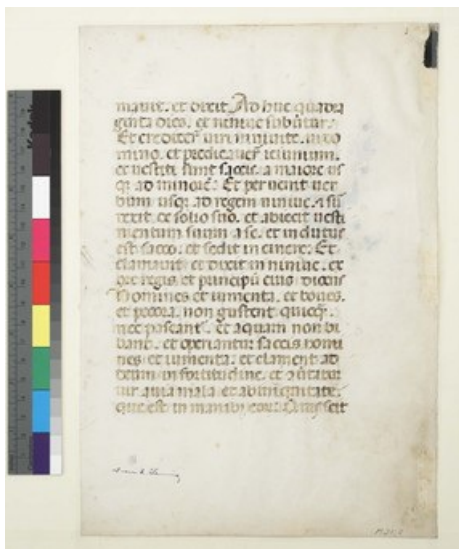 mavit. et dixit Ad huc quadra
ginta dies. et ninive subūtur.
Et crediderūt viri ninivite. in do
mino. et predicaverūt ieiunium.
et vestiti sunt saccis. a maiore us
q; ad minorē. Et pervenit ver
bum usq; ad regem ninive. 7 sur
rexit de solio suo. et abiecit vesti
mentum suum a se. et indutus
est sacco. et sedit in cinere. Et
clamavit et dixit in ninive. ex
ore regis et principū eius dicens
Homines et iumenta. et boves.
et pecora. non gustent quicq̄.
nec pascant. et aquam non bi
bant. et operiantur saccis homi
nes et iumenta. et clament ad
deum in fortitudine. et
via mala et ab iniquitate.
que est in manib; eor. Quis scit
Kodak